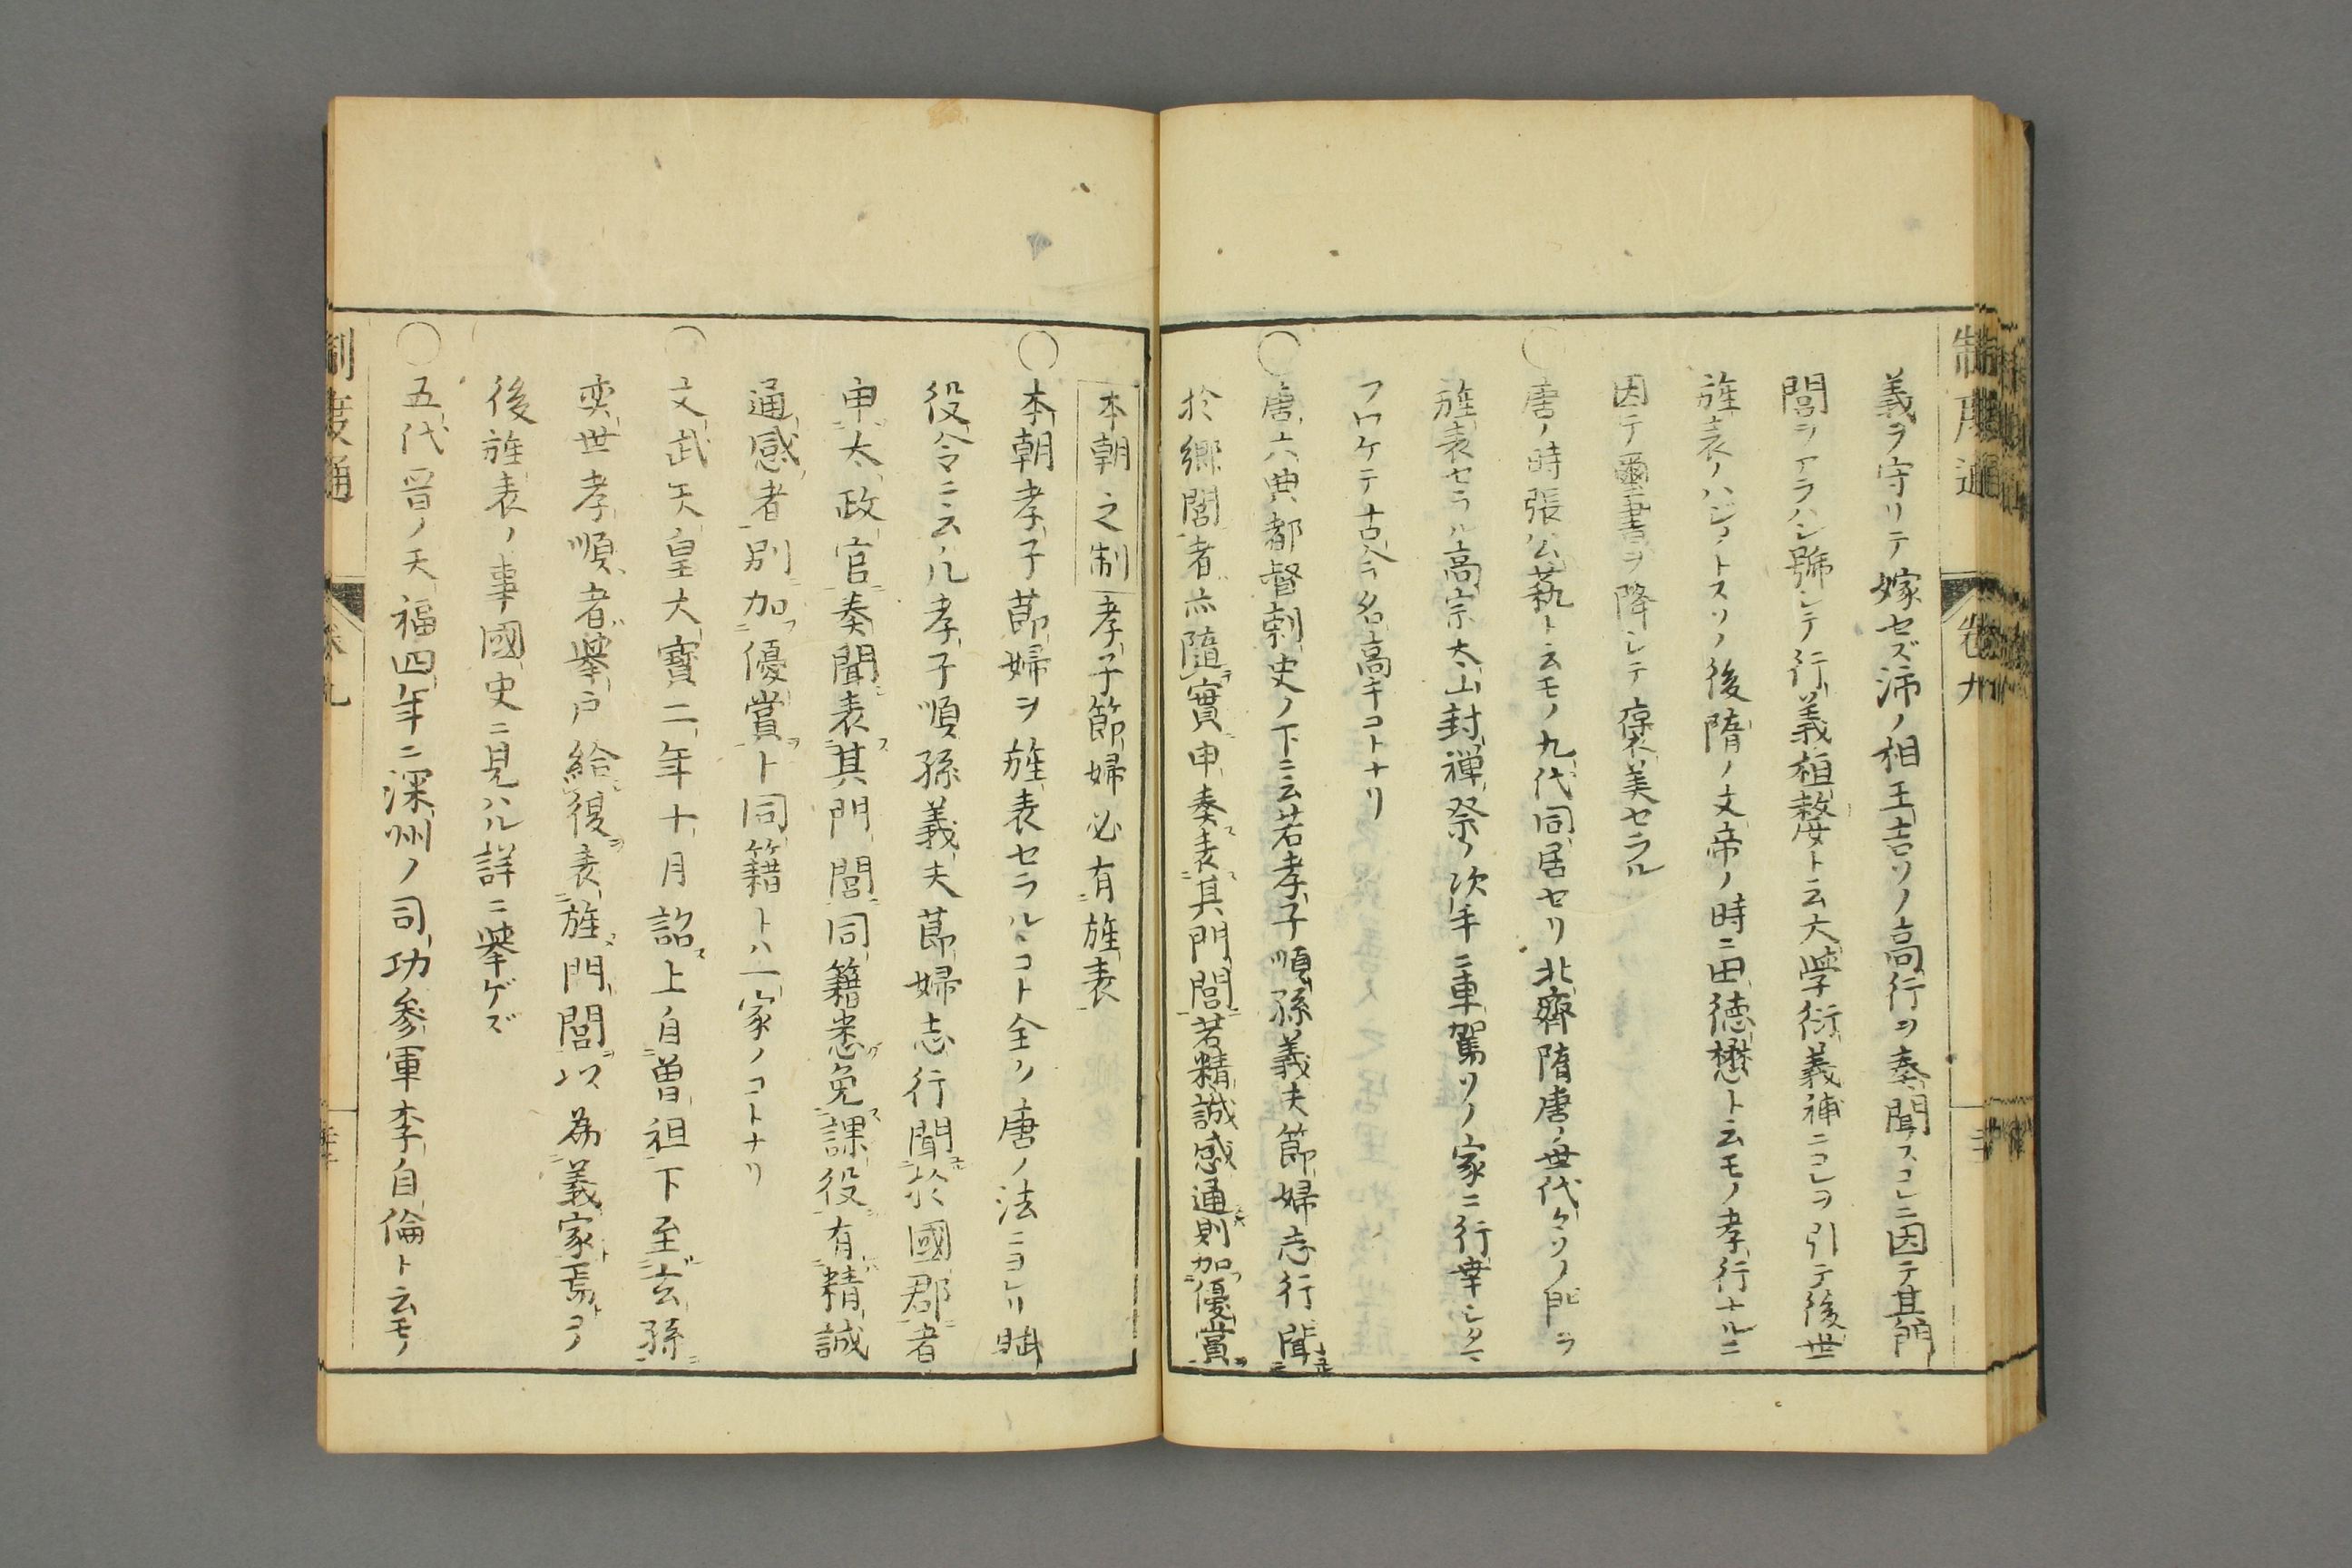 制度通 卷九
義ヲ守リテ嫁セズ沛ノ相王吉ソノ高行ヲ奏聞スコレニ因テ其門
閭ヲアラハシ號シテ行義桓嫠ト云大学衍義補ニコレヲ引テ後世
旌表ノハジメトスソノ後隋ノ文帝ノ時ニ田徳懋ト云モノ孝行ナルニ
因テ璽書ヲ降シテ褒美セラル
○唐ノ時張公藝ト云モノ九代同居セリ北齊隋唐ノ世代々ソノ門ヲ
旌表セラル高宗太山封禅祭ノ次手ニ車駕ソノ家ニ行幸シタマ
フワケテ古今ニ名高キコトナリ
○唐六典都督刺史ノ下ニ云若孝子順孫義夫節婦志行聞
於郷閭者亦隨實申奏表其門閭若精誠感通則加優賞
本朝之制 孝子節婦必有旌表
○本朝孝子節婦ヲ旌表セラルヽコト全ク唐ノ法ニヨレリ賦
役令ニ云凡孝子順孫義夫節婦志行聞於國郡者
申太政官奏聞表其門閭同籍悉免課役有精誠
通感者別加優賞ト同籍トハ一家ノコトナリ
○文武天皇大寶二年十月詔上自曽祖下至玄孫
奕世孝順者擧戸給復表旌門閭以為義家焉コノ
後旌表ノ事國史ニ見ハル詳ニ擧ゲズ
○五代晋ノ天福四年ニ深州ノ司功參軍李自倫ト云モノ
制度通 卷九